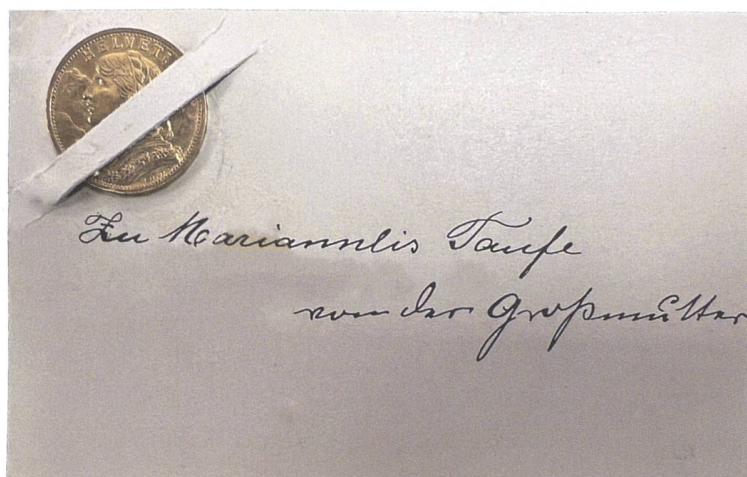 HELVETI
Zu Mariannlis Taufe
von der Großmutter